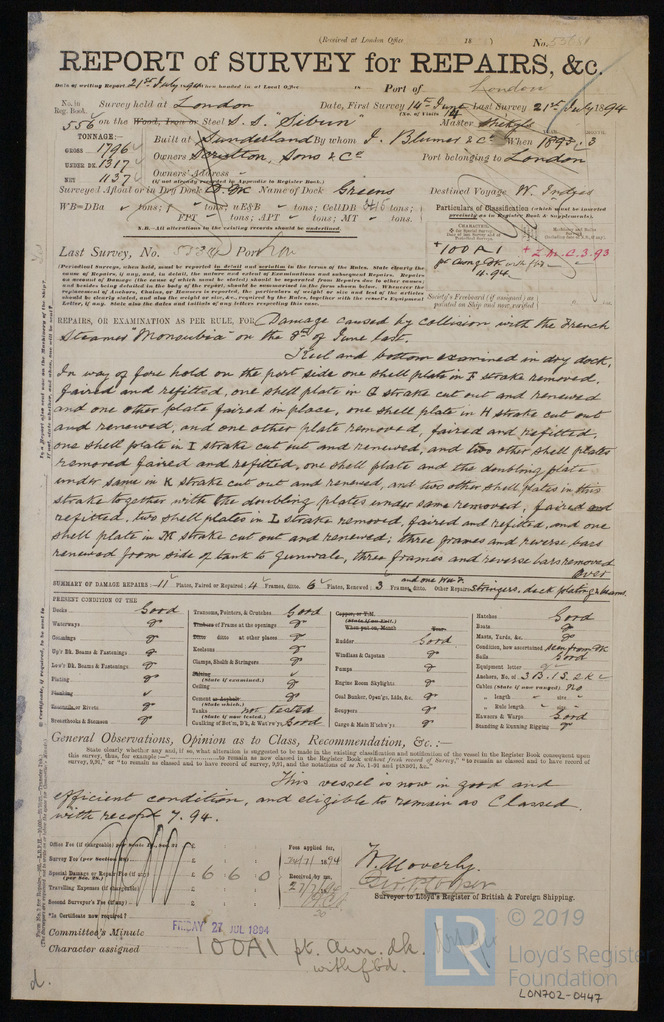 (Received at London Office 18 ) No. 53681
REPORT of SURVEY for REPAIRS, &c.
Date of writing Report 21st July 94 when handed in at Local Office 18 Port of London
No. in Reg. Book. Survey held at London Date, First Survey 14th June Last Survey 21st July 1894
(No. of Visits 14
556 on the Wood, Iron or Steel S.S. "Sibun" Master
TONNAGE:—
GROSS 1796
UNDER DK. 1317
NET 1137
Built at Sunderland By whom J. Blumer & Co When 1893. 3
Owners Scrutton, Sons & Co Port belonging to London
Owners' Address
(if not already recorded in Appendix to Register Book.)
Surveyed Afloat or in Dry Dock D DK Name of Dock Greens Destined Voyage W. Indies
WB=DBa tons; f tons; uE&B tons; CellDB tons;
FPT tons; APT tons; MT tons.
N.B.—All alterations in the existing records should be underlined.
Particulars of Classification (which must be inserted precisely as in Register Book & Supplements).
Last Survey, No. Port Lon
+ 100 A 1 + L.M.C. 3.93
pt awng dk with fbd
4.94
Society's Freeboard (if assigned) as painted on Ship and now verified
(Periodical Surveys, when held, must be reported in detail and seriatim in the terms of the Rules. State clearly the
REPAIRS, OR EXAMINATION AS PER RULE, FOR Damage caused by collision with the French
Steamer "Monsubia" on the 3rd of June last.
Keel and bottom examined in dry dock,
In way of fore hold on the port side one shell plate in F strake removed,
faired and refitted, one shell plate in G strake cut out and renewed
and one other plate faired in place, one shell plate in H strake cut out
and renewed, and one other plate removed, faired and refitted,
one shell plate in I strake cut out and renewed, and two other shell plates
removed faired and refitted, one shell plate and the doubling plate
under same in K strake cut out and renewed, and two other shell plates in this
strake together with the doubling plates under same removed, faired and
refitted, two shell plates in L strake removed, faired and refitted, and one
shell plate in M strake cut out and renewed; three frames and reverse bars
renewed from side of tank to gunwale, three frames and reverse bars removed
Over
SUMMARY OF DAMAGE REPAIRS:—11 Plates, Faired or Repaired; 4 Frames, ditto. 6 Plates, Renewed; 3 Frames, ditto. Other Repairs Stringers, deck plating & beams.
PRESENT CONDITION OF THE
Decks Good
Waterways
Coamings
Up'r Dk. Beams & Fastenings
Low'r Dk. Beams & Fastenings
Plating
Planking
Treenails or Rivets
Breasthooks & Stemson
Transoms, Pointers, & Crutches Good
Timbers of Frame at the openings
Ditto ditto at other places
Keelsons
Clamps, Shelfs & Stringers
(State if examined.)
Ceiling
Cement or Asphalt
(State which.)
Tanks not tested
(State if now tested.)
Caulking of Bot'm, D'k, & Wat'rw'y Good
Copper, or Y.M.
(State if on Felt.)
When put on, Month Year
Rudder Good
Windlass & Capstan
Pumps
Engine Room Skylights
Coal Bunker, Open'gs, Lids, &c.
Scuppers
Cargo & Main H'tchw'ys
Hatches Good
Boats
Masts, Yards, &c.
Condition, how ascertained seen from DK
Sails Good
Equipment letter
Anchors, No. of 3B. 1S. 2K
Cables (State if now ranged) No
„ length size
„ Rule length size
Hawsers & Warps Good
Standing & Running Rigging
General Observations, Opinion as to Class, Recommendation, &c.:—
State clearly whether any, and if so, what alteration is suggested to be made in the existing classification and notification of the vessel in the Register Book consequent upon
This vessel is now in good and
efficient condition, and eligible to remain as Classed
with record 7. 94.
Office Fee (if chargeable)
Survey Fee (per Section 28)
Special Damage or Repair Fee (if any) (per Sec. 28.) £ 6 6 0
Travelling Expenses (if chargeable)
Second Surveyor's Fee (if any)
Is Certificate now required?
Fees applied for, 24/7/1894
Received by me,
W. Moverly.
Surveyor to Lloyd's Register of British & Foreign Shipping.
Committee's Minute FRIDAY 27 JUL 1894
Character assigned 100A1 pt. Awn. dk.
with fbd.
d.
© 2019
LR Lloyd's Register
Foundation
LON702-0447